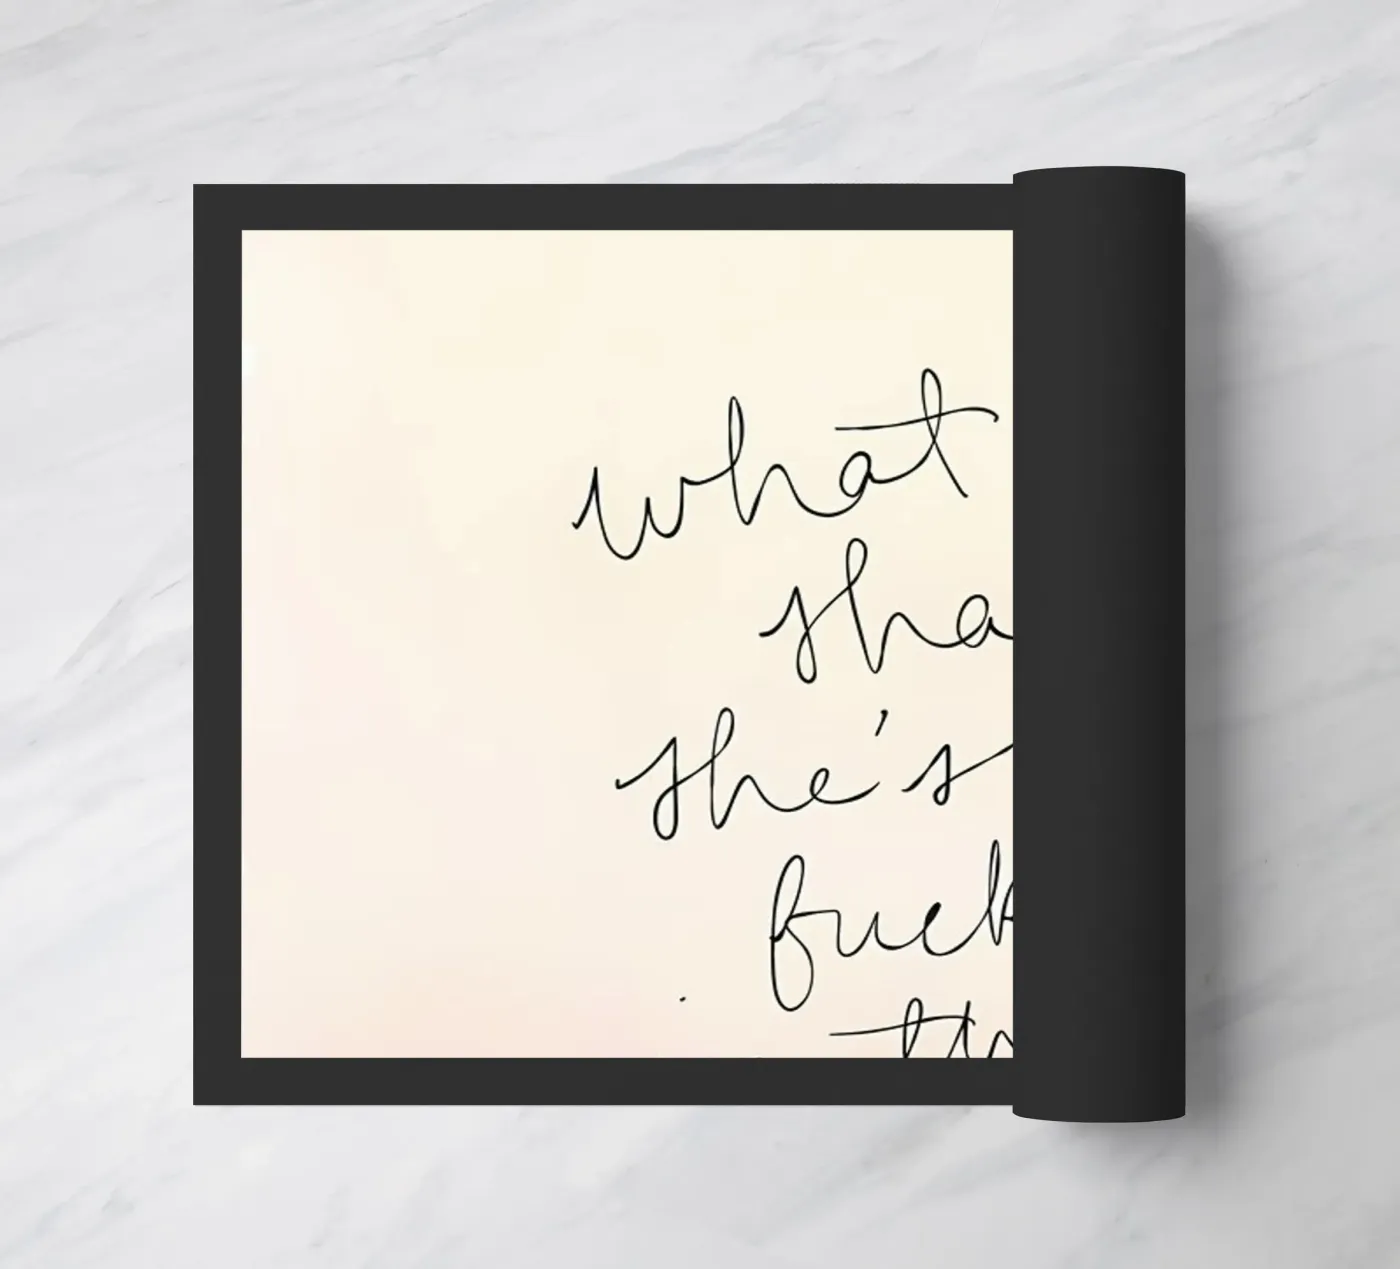 what
sha
she's
fuck
th